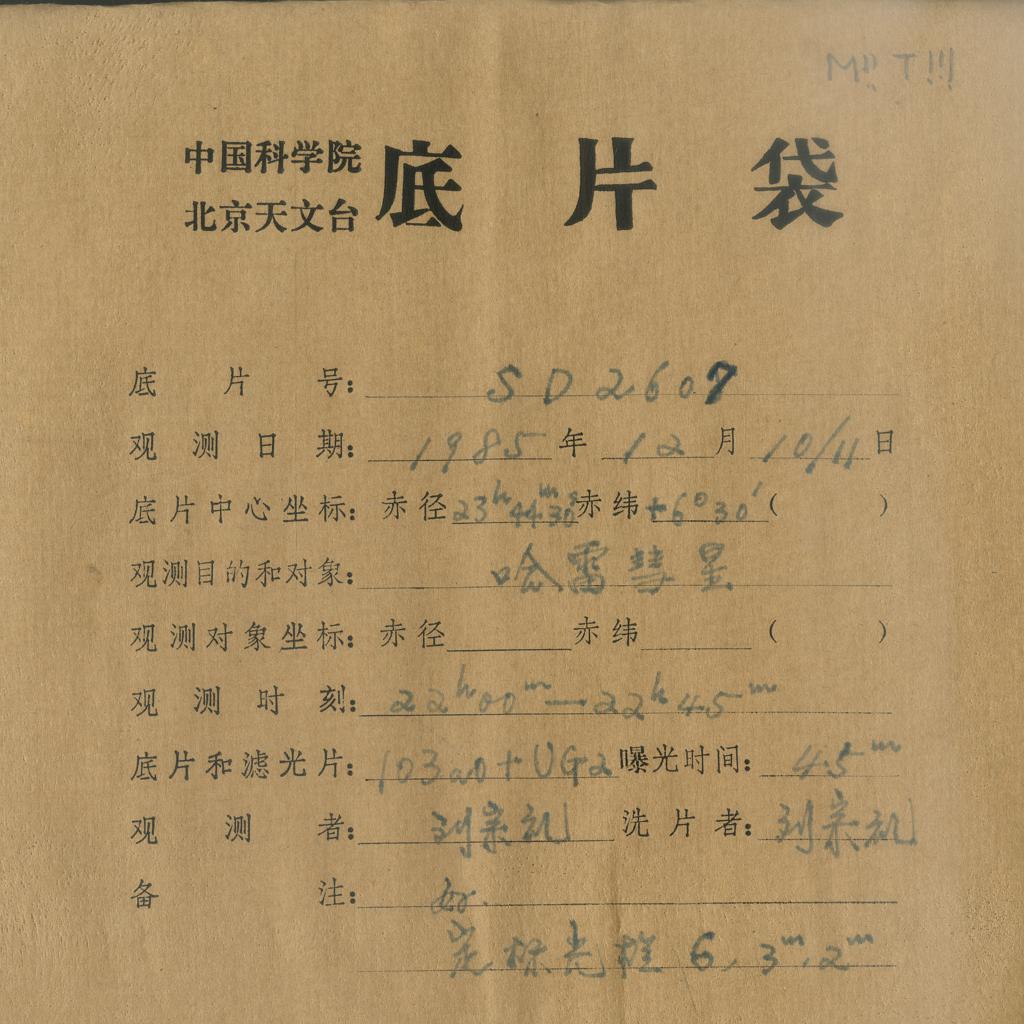 M!! T!!!
中国科学院
北京天文台 底片袋
底片号: SD2607
观测日期: 1985年12月10/11日
底片中心坐标: 赤径23h44m30s赤纬+6°30′( )
观测目的和对象: 哈雷彗星
观测对象坐标: 赤径 赤纬 ( )
观测时刻: 22h00m—22h45m
底片和滤光片: 103a0+UG2 曝光时间: 45m
观测者: 刘宗礼 洗片者: 刘宗礼
备注: 好.
定标光楔 6, 3m, 2m